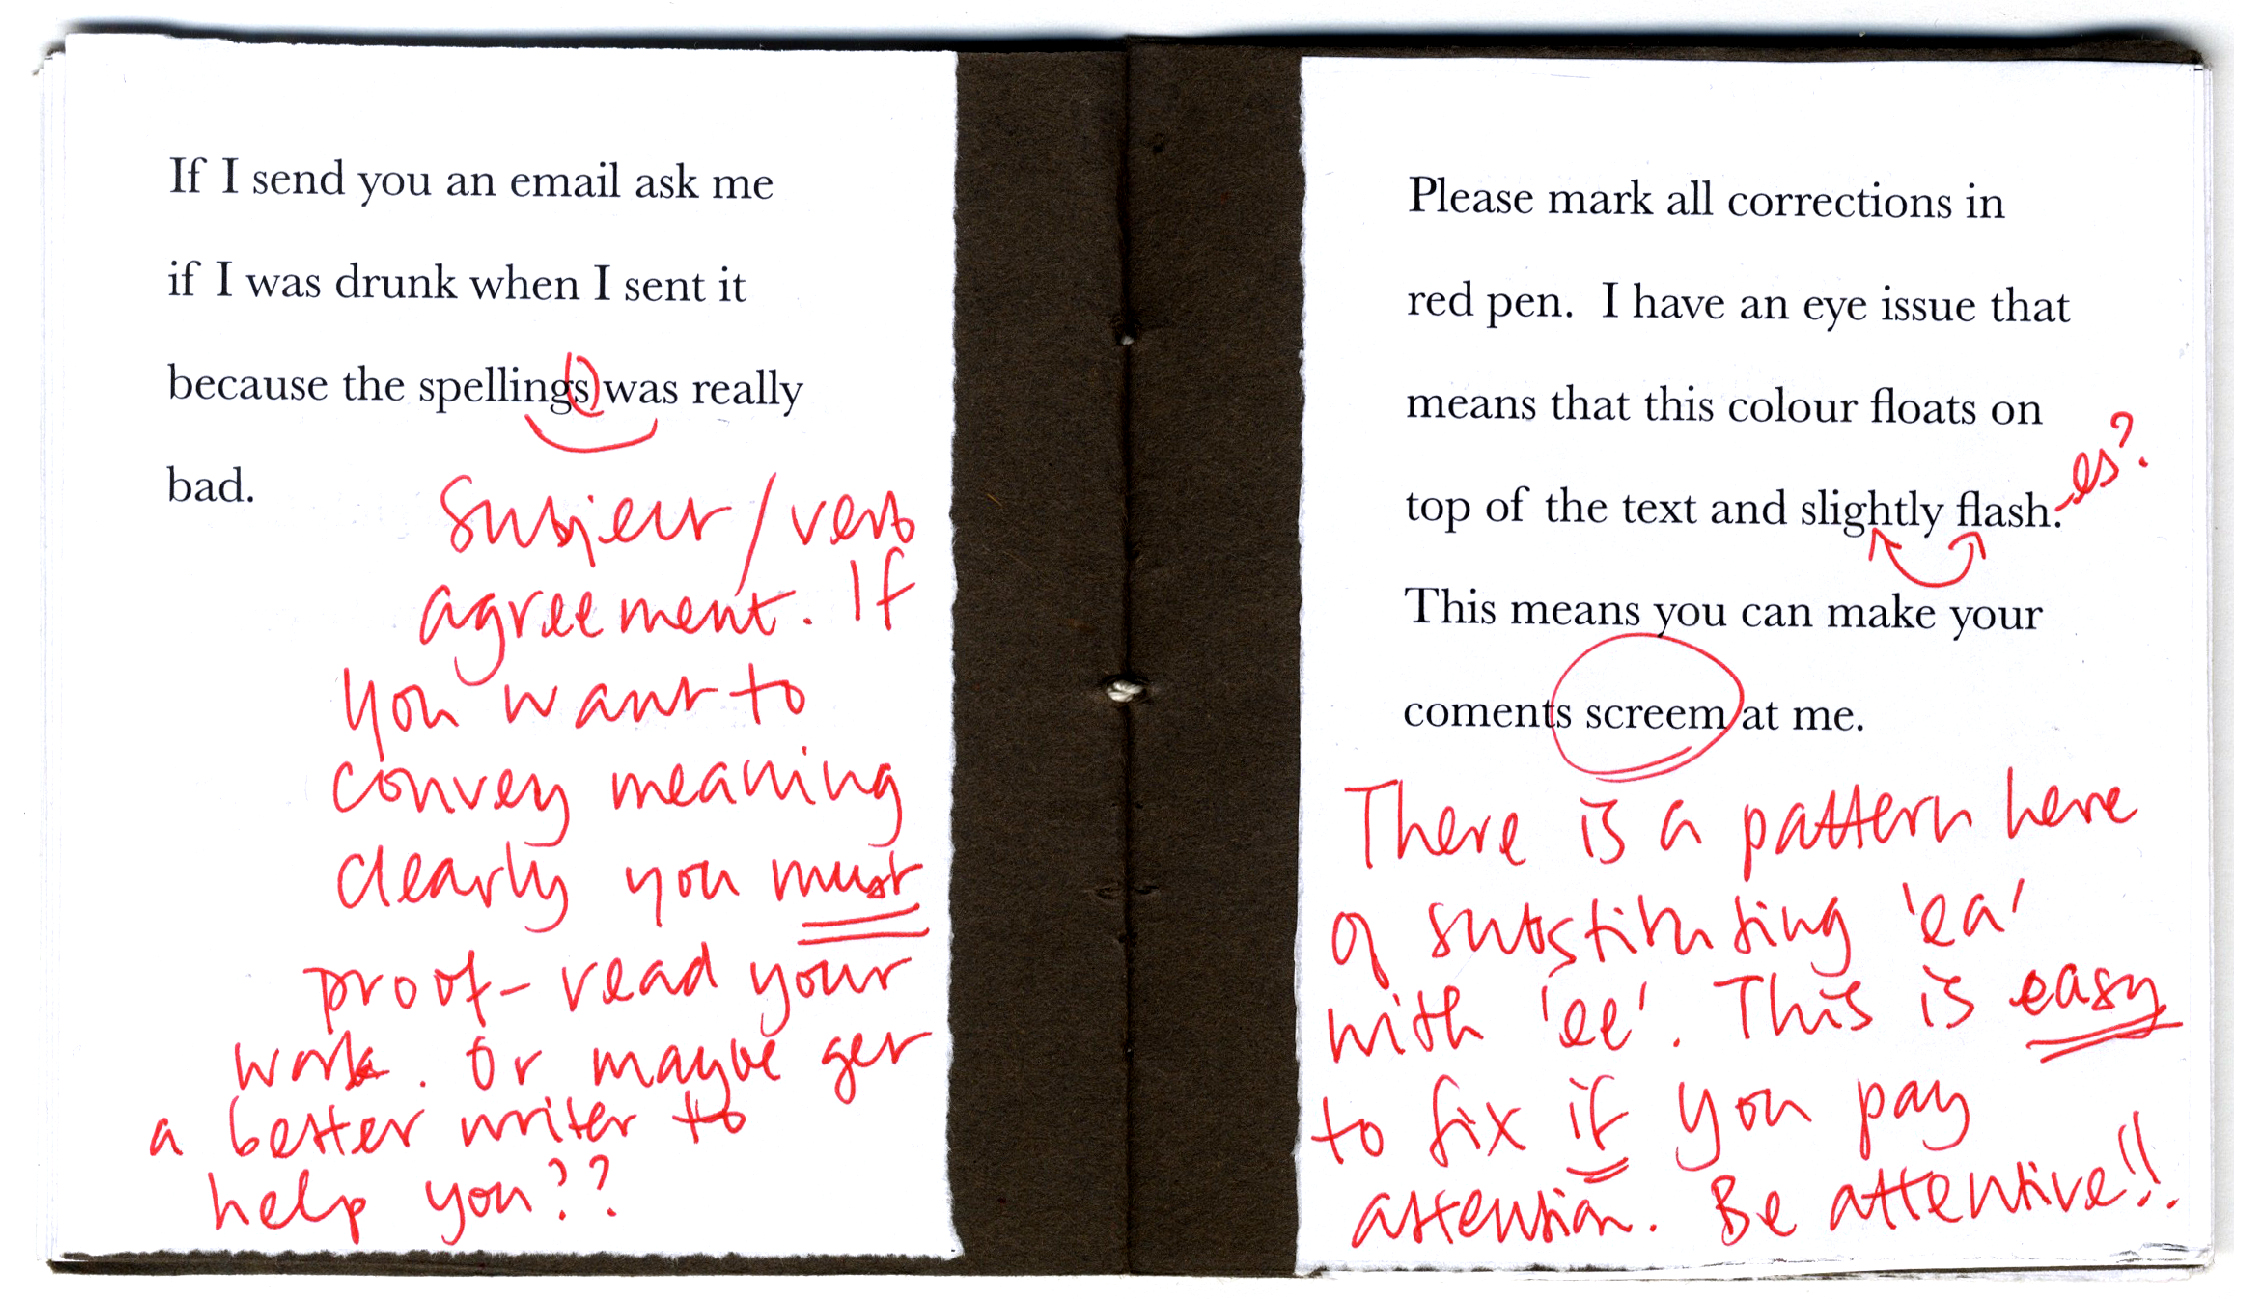 If I send you an email ask me
if I was drunk when I sent it
because the spellings was really
bad.
Subject/verb
agreement. If
you want to
convey meaning
clearly you must
proof-read your
work. Or maybe get
a better writer to
help you??
Please mark all corrections in
red pen. I have an eye issue that
means that this colour floats on
top of the text and slightly flash.
es?
This means you can make your
coments screem at me.
There is a pattern here
of substituting 'ea'
with 'ee'. This is easy
to fix if you pay
attention. Be attentive!!